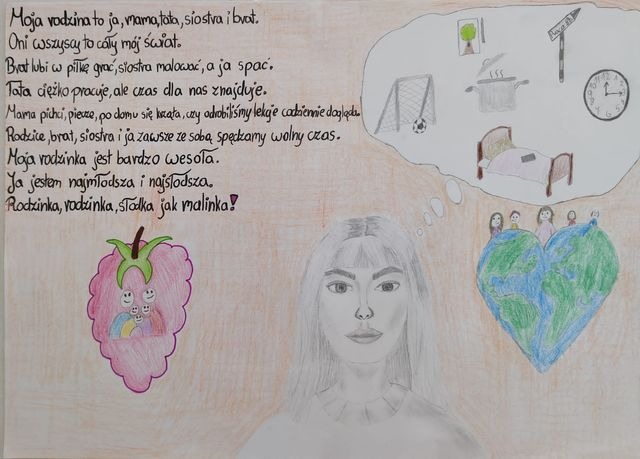 Moja rodzina to ja, mama, tata, siostra i brat.
Oni wszyscy to cały mój świat.
Brat lubi w piłkę grać, siostra malować, a ja spać.
Tata ciężko pracuje, ale czas dla nas znajduje.
Mama pichci, pierze, po domu się krząta, czy odrobiliśmy lekcje codziennie dogląda.
Rodzice, brat, siostra i ja zawsze ze sobą spędzamy wolny czas.
Moja rodzinka jest bardzo wesoła.
Ja jestem najmłodsza i najsłodsza.
Rodzinka, rodzinka, słodka jak malinka!